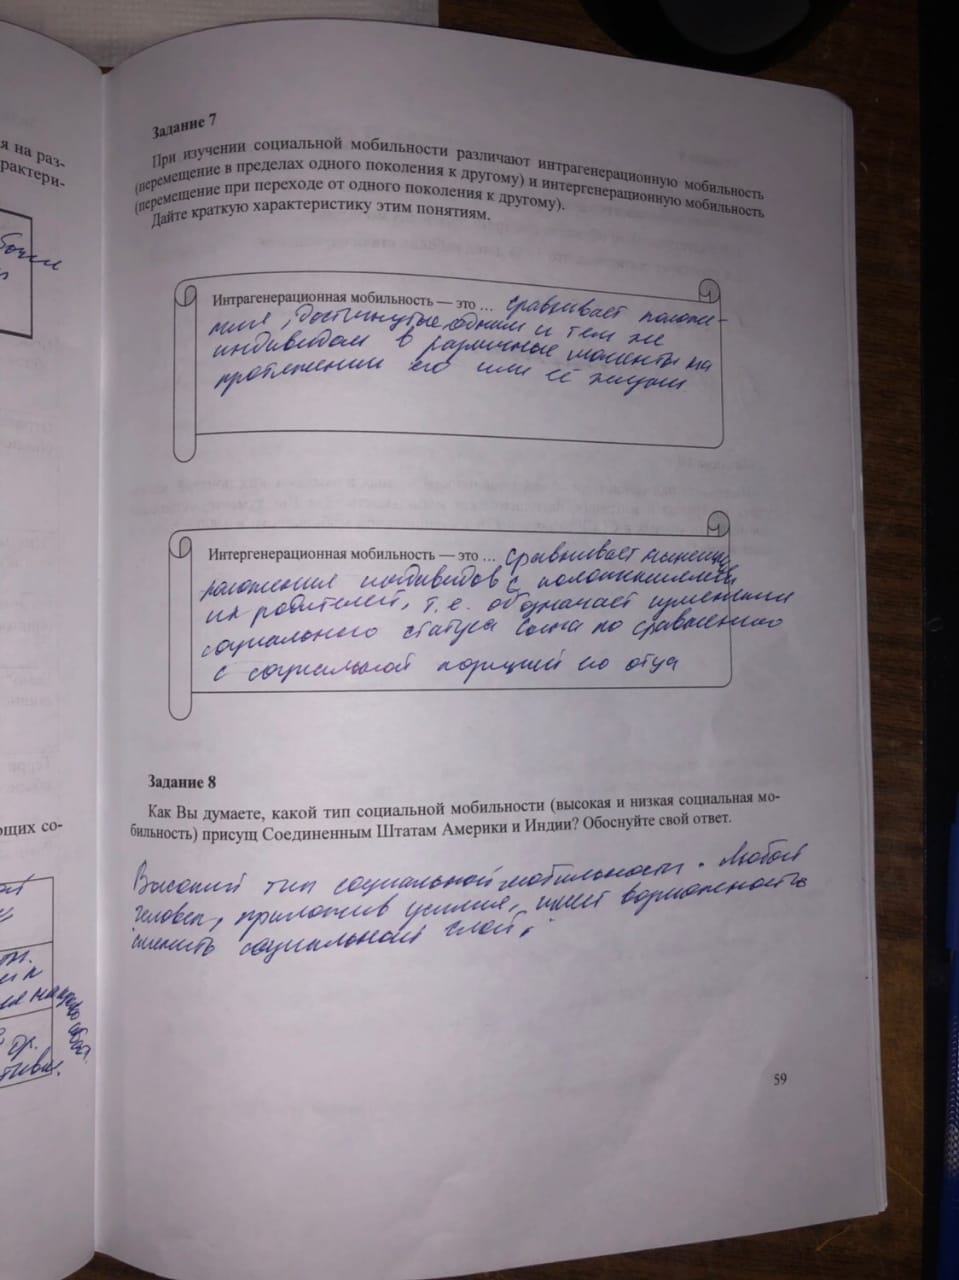 я на раз-
рактери-
Задание 7
При изучении социальной мобильности различают интрагенерационную мобильность
(перемещение в пределах одного поколения к другому) и интергенерационную мобильность
(перемещение при переходе от одного поколения к другому).
Дайте краткую характеристику этим понятиям.
Интрагенерационная мобильность — это ... сравнивает положе-
ния, достигнутые одним и тем же
индивидом в различные моменты на
протяжении его или её жизни
Интергенерационная мобильность — это ... сравнивает нынешн
положения индивидов с положениями
их родителей, т.е. обозначает изменения
социального статуса сына по сравнению
с социальной позицией его отца
Задание 8
Как Вы думаете, какой тип социальной мобильности (высокая и низкая социальная мо-
бильность) присущ Соединенным Штатам Америки и Индии? Обоснуйте свой ответ.
ющих со-
Высокий тип социальной мобильности. Любой
человек, приложив усилия, имеет возможность
сменить социальный слой.
59